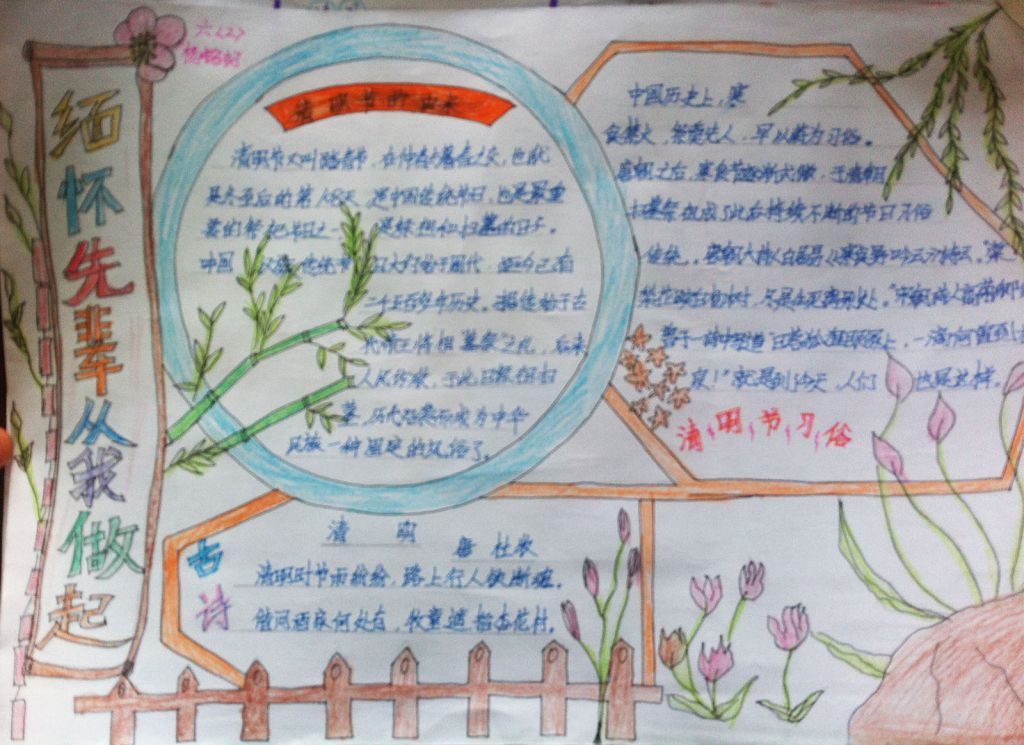 六(2)
缅怀先辈从我做起
清明节的由来
清明节又叫踏青节,在仲春与暮春之交,也就
是冬至后的第108天,是中国传统节日,也是最重
要的祭祀节日之一,是祭祖和扫墓的日子。
中国 传统 节日大约始于周代,距今已有
二千五百多年历史。
代帝王将相"墓祭"之礼,后来
人民
墓,历代沿袭而成为中华
民族一种固定的风俗了。
中国历史上,寒
食禁火,祭奠先人,早以蔚为习俗。
唐朝之后,寒食节逐渐式微,于清明
扫墓祭祖成了此后持续不断的节日习俗
唐朝大诗人白居易
棠梨 白杨树,尽是生死离别处。"
曾于一诗中写道 上,一滴何曾到
泉!"就是到了今天,人们 也是这样。
清明节习俗
古诗
清 明
唐 杜牧
清明时节雨纷纷,路上行人欲断魂。
借问酒家何处有,牧童遥指杏花村。